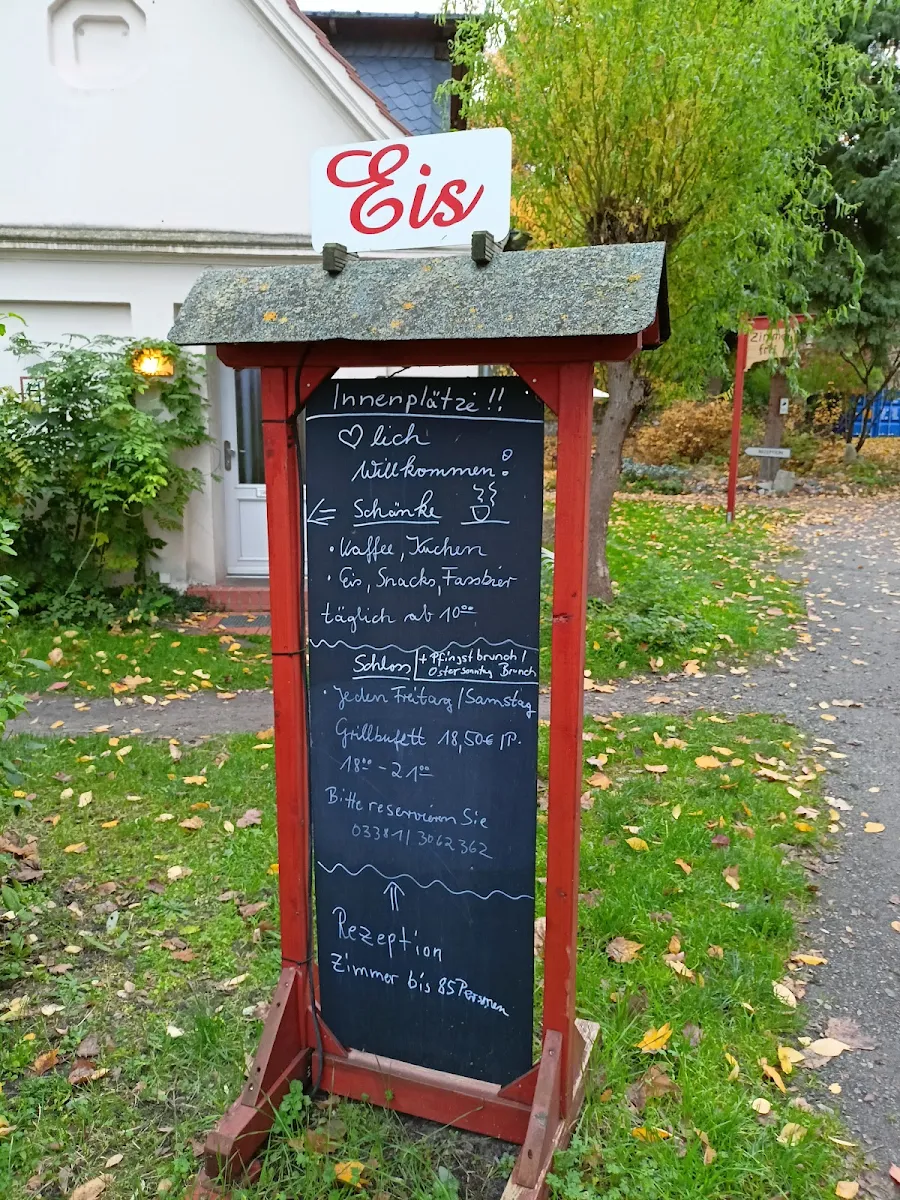 Eis
Innenplätze !!
♡ lich
Willkommen!
⇐ Schänke
• Kaffee, Kuchen
• Eis, Snacks, Fassbier
täglich ab 10°°
Schloss
+ Pfingstbrunch /
Ostersonntag Brunch
• Jeden Freitag / Samstag
Grillbufett 18,50€ / P.
18°° - 21°°
Bitte reservieren Sie
03381 / 3062362
⇑
Rezeption
Zimmer bis 85 Personen
Zimmer
frei
REZEPTION